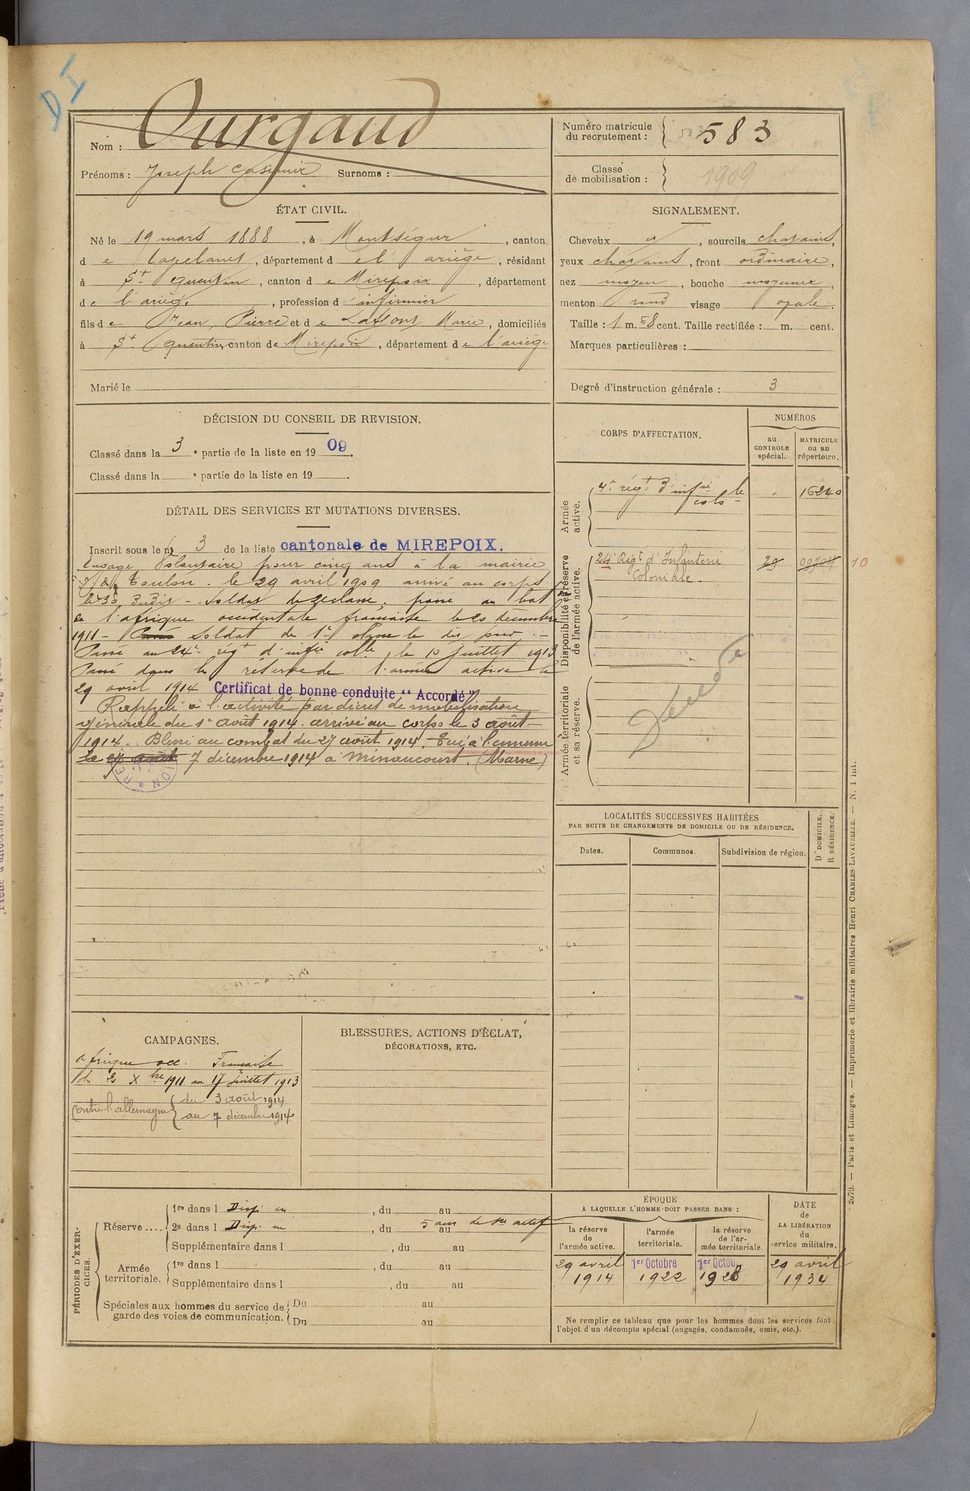 DI
Nom : Ourgaud
Prénoms : Joseph Casimir Surnoms :
Numéro matricule du recrutement : 583
Classe de mobilisation : 1909
ÉTAT CIVIL.
Né le 19 mars 1888, à Montségur, canton
d e Lavelanet, département d e l' ariège, résidant
à St Quentin, canton d e Mirepoix, département
d e l'ariège, profession d' infirmier
fils d e Jean Pierre et d e Lafont Marie, domiciliés
à St Quentin, canton de Mirepoix, département d e l'ariège
Marié le
SIGNALEMENT.
Cheveux et, sourcils chatains,
yeux chatains, front ordinaire,
nez moyen, bouche moyenne,
menton rond visage ovale.
Taille : 1 m. 58 cent. Taille rectifiée : m. cent.
Marques particulières :
Degré d'instruction générale : 3
DÉCISION DU CONSEIL DE REVISION.
Classé dans la 3e partie de la liste en 1909.
Classé dans la e partie de la liste en 19 .
DÉTAIL DES SERVICES ET MUTATIONS DIVERSES.
Inscrit sous le n° 3 de la liste cantonale de MIREPOIX.
Engagé Volontaire pour cinq ans à la mairie
de Toulon le 29 avril 1909 arrivé au corps
le 30 dudit - Soldat de 2e classe, passé au bat
de l'afrique occidentale française le 20 décembre
1911 - Passé Soldat de 1e classe le dix
Passé au 24e régt d'infie colle, le 10 juillet 1913
Passé dans la réserve de l'armée active le
29 avril 1914 Certificat de bonne conduite "Accordé"
Rappelé à l'activité par décret de mobilisation
générale du 1er août 1914. arrivé au corps le 3 août
1914. Blessé au combat du 27 août 1914. Tué à l'ennemi
le 27 août 7 décembre 1914 à Minaucourt. (Marne)
CORPS D'AFFECTATION.
NUMÉROS
au CONTROLE spécial.
MATRICULE ou au répertoire.
Armée active.
4e régt d'infie colole 16240
Disponibilité et réserve de l'armée active.
24e Régt d'Infanterie Coloniale. 29
10
Armée territoriale et sa réserve.
Décédé
LOCALITÉS SUCCESSIVES HABITÉES
PAR SUITE DE CHANGEMENTS DE DOMICILE OU DE RÉSIDENCE.
Dates. Communes. Subdivision de région. D DOMICILE. R RÉSIDENCE.
CAMPAGNES.
afrique occ. Française
du 20 Xbre 1911 au 17 juillet 1913
Contre l'allemagne du 3 août 1914
au 7 décembre 1914
BLESSURES, ACTIONS D'ÉCLAT,
DÉCORATIONS, ETC.
PÉRIODES D'EXERCICES.
Réserve ....
1re dans l Disp. en , du au
2e dans l Disp. en , du au 5 ans de sce actif
Supplémentaire dans l , du au
Armée territoriale.
1re dans l , du au
Supplémentaire dans l , du au
Spéciales aux hommes du service de garde des voies de communication.
Du au
Du au
ÉPOQUE
A LAQUELLE L'HOMME DOIT PASSER DANS :
la réserve de l'armée active.
l'armée territoriale.
la réserve de l'armée territoriale.
DATE de LA LIBÉRATION du service militaire.
29 avril 1914
1er Octobre 1922
1er Octob 1928
29 avril 1934
Ne remplir ce tableau que pour les hommes dont les services font
l'objet d'un décompte spécial (engagés, condamnés, omis, etc.).
Paris et Limoges. — Imprimerie et librairie militaires Henri CHARLES-LAVAUZELLE. — N. 1 int.